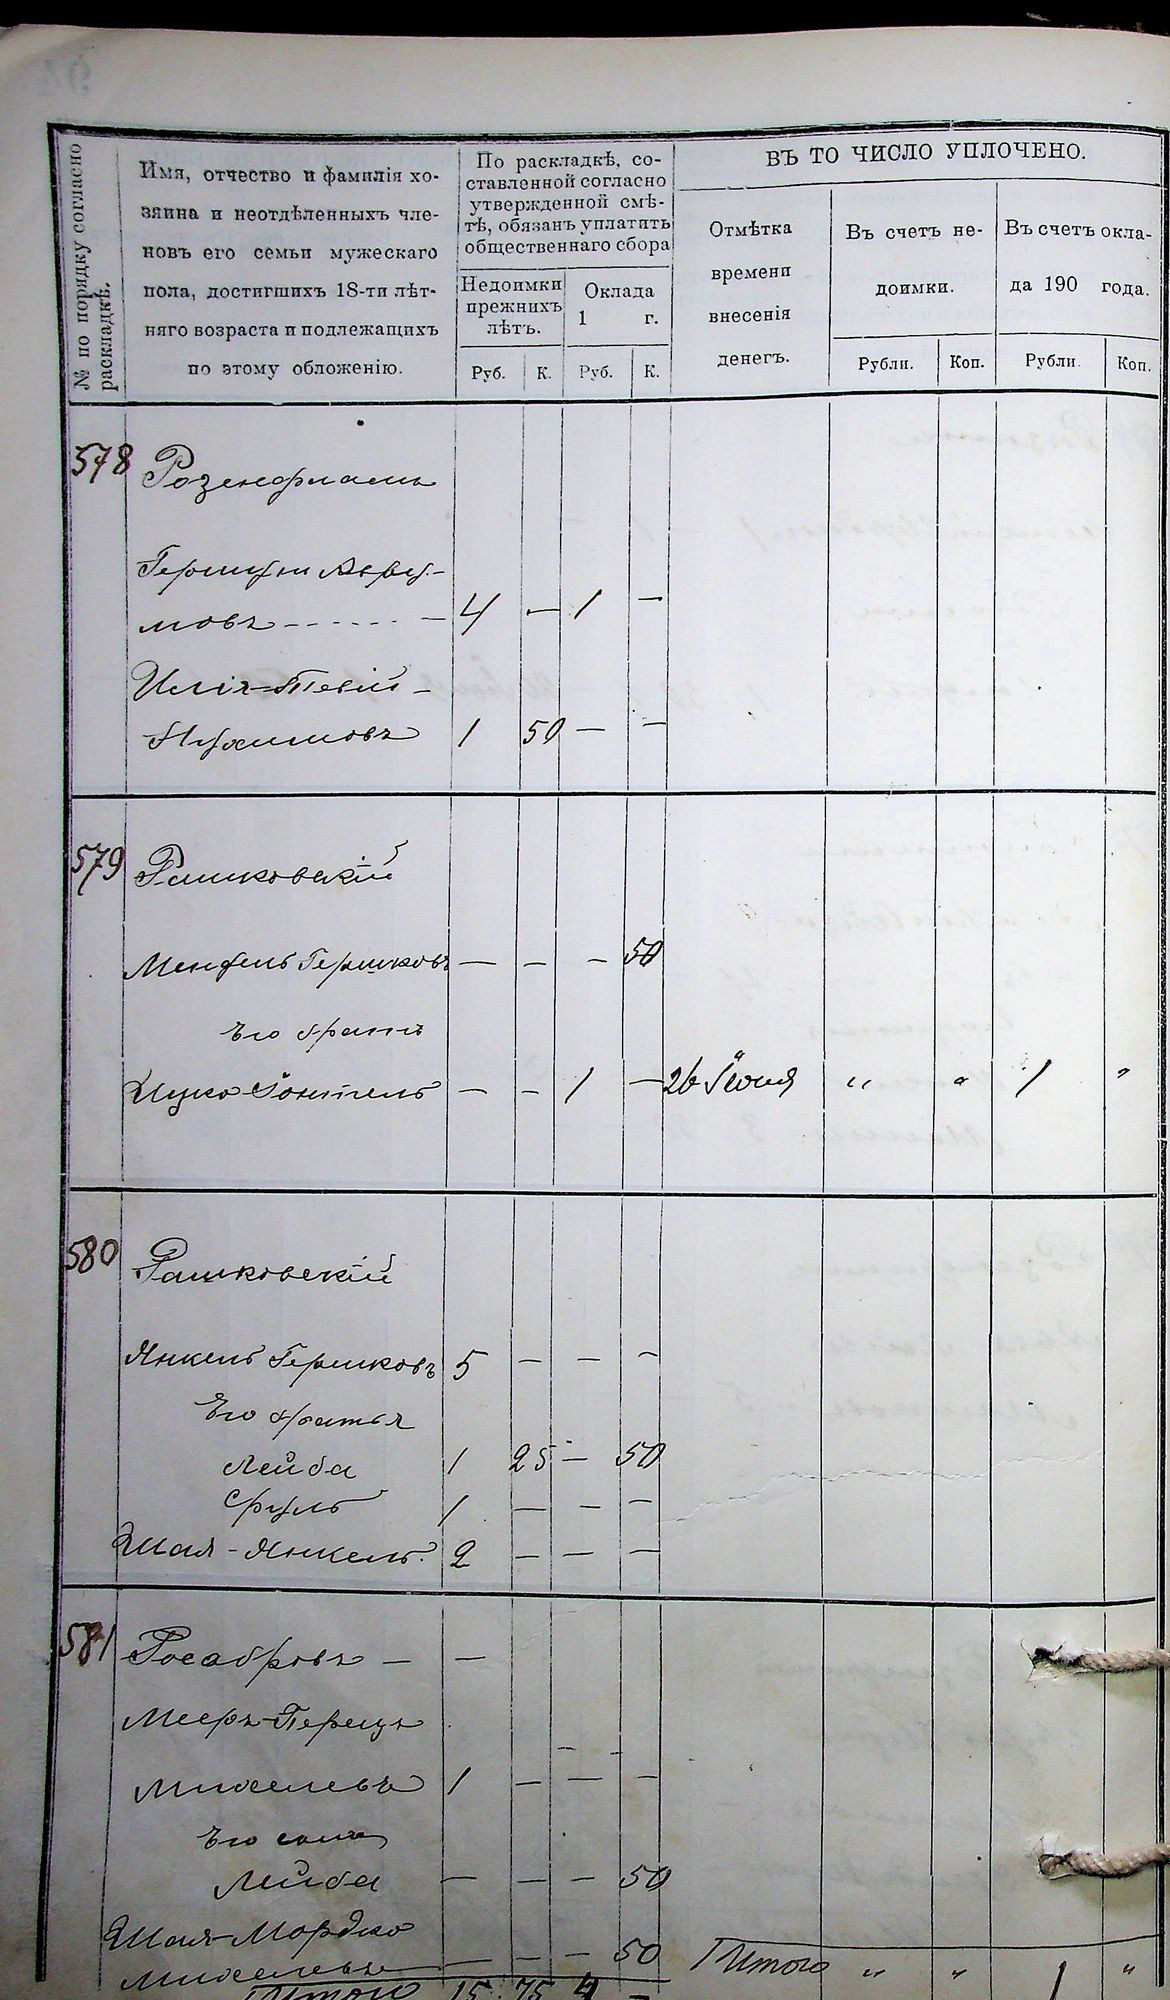 № по порядку согласно раскладкѣ.
Имя, отчество и фамилія хо-
зяина и неотдѣленныхъ чле-
новъ его семьи мужескаго
пола, достигшихъ 18-ти лѣт-
няго возраста и подлежащихъ
по этому обложенію.
По раскладкѣ, со-
ставленной согласно
утвержденной смѣ-
тѣ, обязанъ уплатить
общественнаго сбора
Недоимки
прежнихъ
лѣтъ.
Оклада
1 г.
Руб. К. Руб. К.
ВЪ ТО ЧИСЛО УПЛОЧЕНО.
Отмѣтка
времени
внесенія
денегъ.
Въ счетъ не-
доимки.
Въ счетъ окла-
да 190 года.
Рубли. Коп. Рубли. Коп.
578 Розенфламъ
Гершун
мовъ - - - - - - — 4 — 1 —
Илія-Тевій -
Нухимовъ 1 50 — —
579 Рашковскій
Мендель Гершковъ — — — 50
Его братъ
Ицко — — 1 — 26 Іюня " " 1 "
580 Рашковскій
Янкель Гершковъ 5 — — —
Его братья
Лейба 1 25 — 50
Сруль 1 — — —
Шая-Янкель. 2 — — —
581 Росабровъ — —
Мееръ-Перецъ
Михелевъ 1 — — —
Его сынъ
Лейба — — — 50
Шая-Мордко
Михелевъ — — — 50 Итого " " 1 "
Итого 15 75 4 —